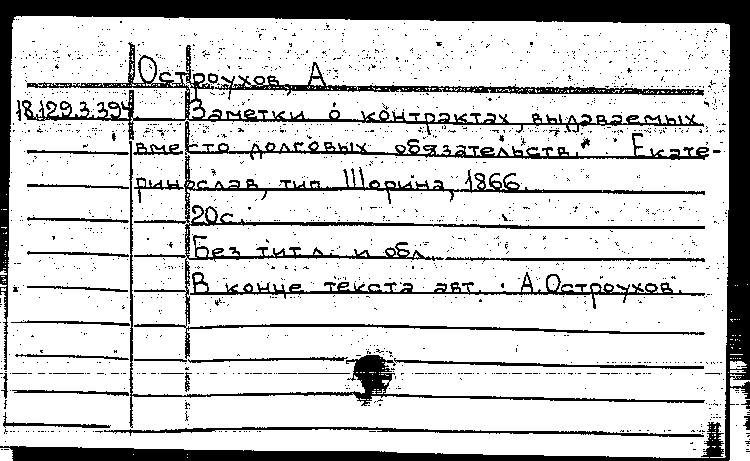 Остроухов, А
18.129.3.394. Заметки о контрактах, выдаваемых
вместо долговых обязательств. Екате-
ринослав, тип. Шорина, 1866.
20с.
Без тит.л. и обл.
В конце текста авт.: А.Остроухов.